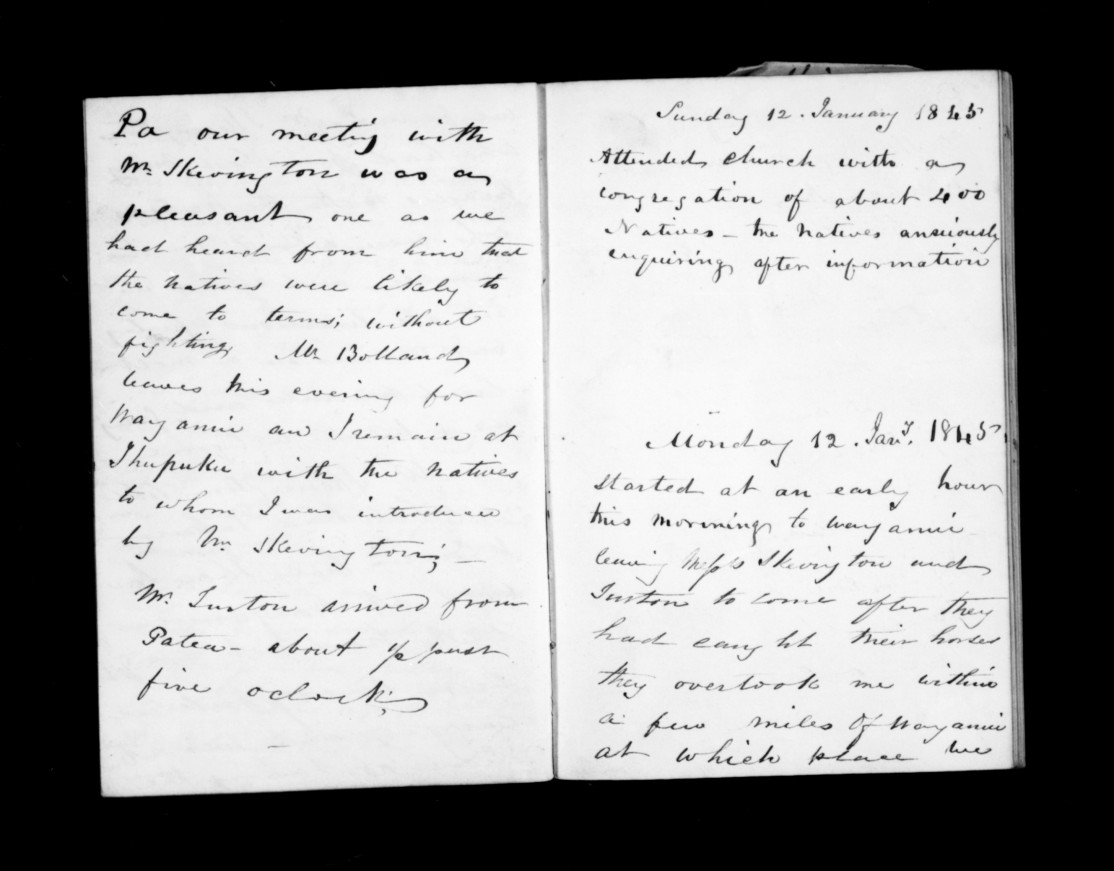 Pa our meeting with
Mr. Skevington was a
pleasant one as we
had heard from him that
the natives were likely to
come to terms; without
fighting Mr Bolland
leaves this evening for
Wayamie and I remain at
Ihupuku with the natives
to whom I was introduced
by Mr. Skevington; —
Mr. Turton arrived from
Patea - about ½ past
five oclock;
Sunday 12. January 1845
Attended church with a
congregation of about 400
Natives - the natives anxiously
enquiring after information
Monday 12. Jany. 1845.
Started at an early hour
this morning to Wayamie
leaving Messrs Skevington and
Turton to come after they
had caught their horses
they overtook me within
a few miles of Wayamie
at which place we